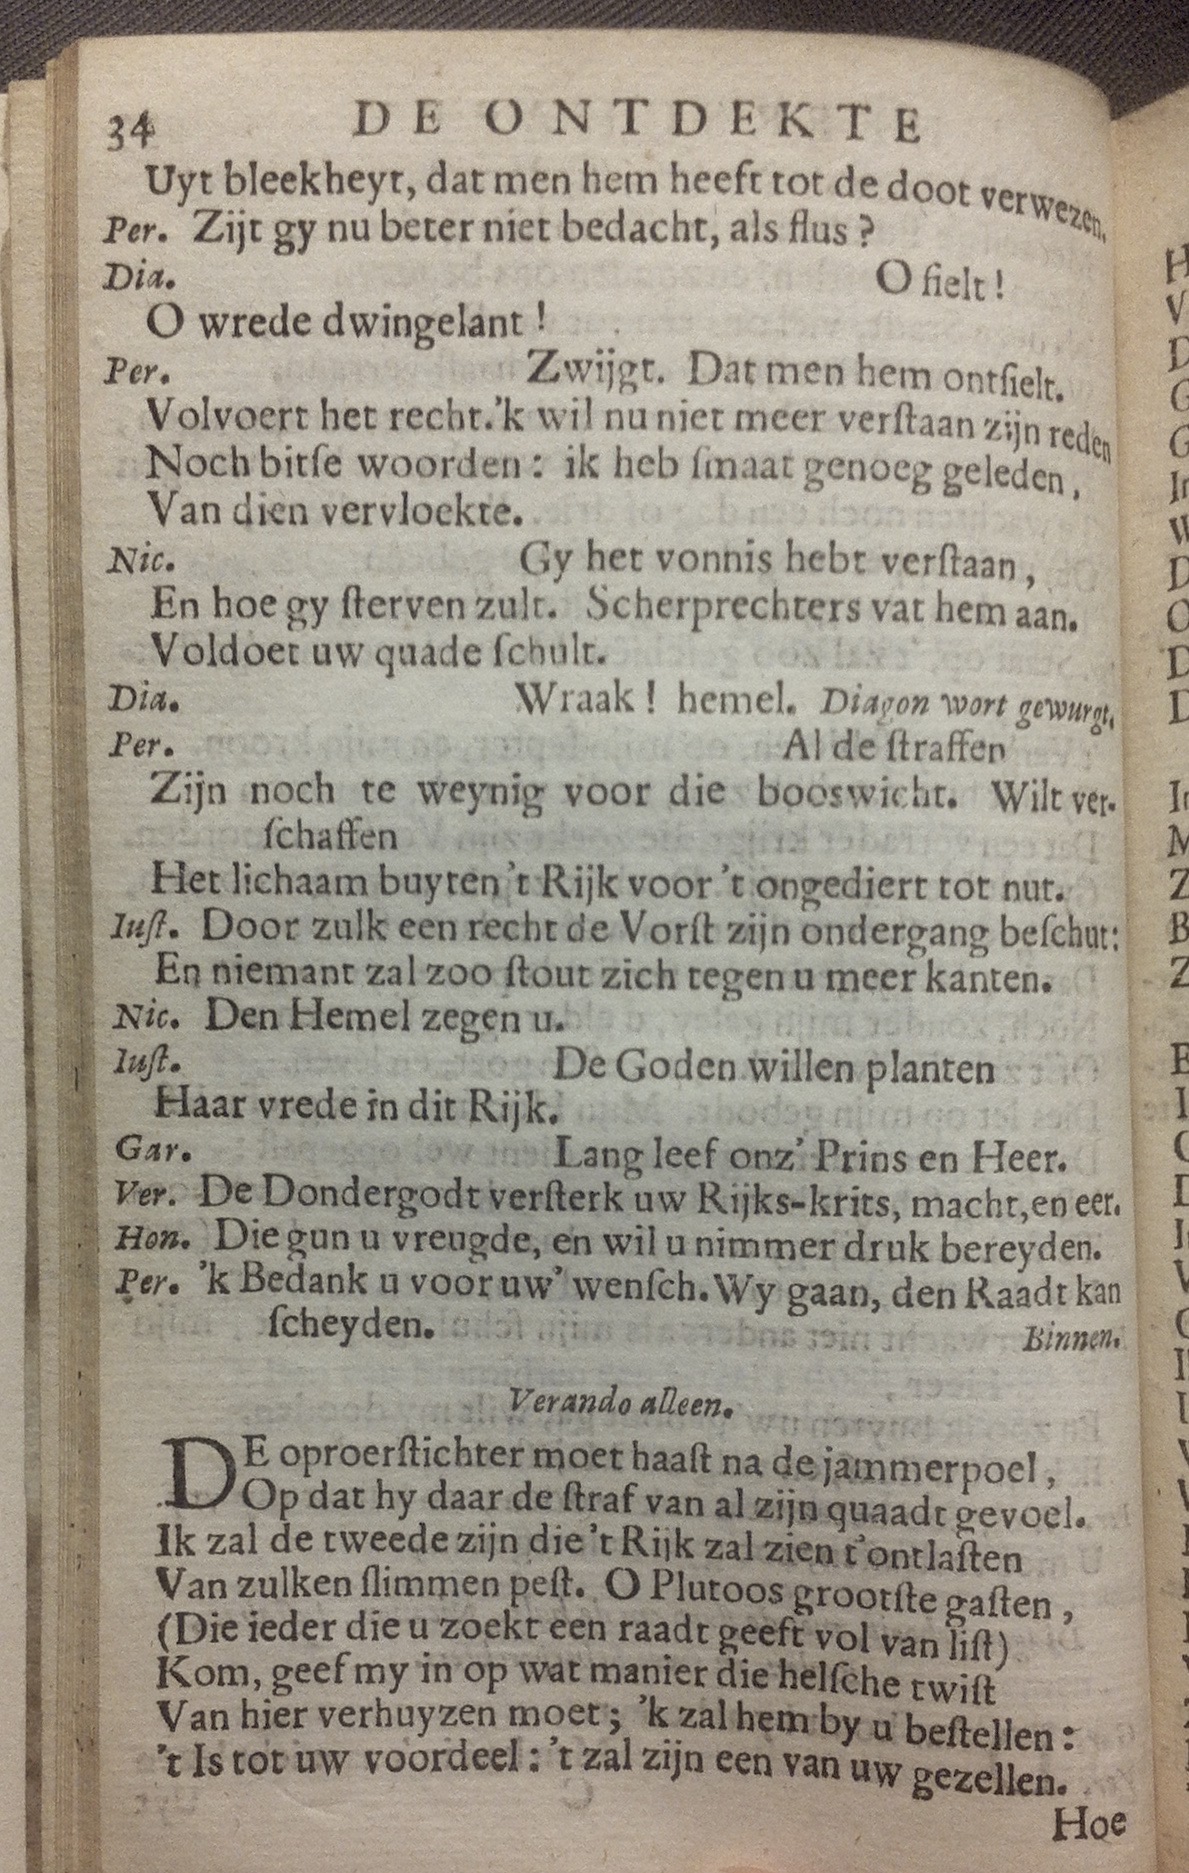 34 DE ONTDEKTE
Uyt bleekheyt, dat men hem heeft tot de doot verwezen.
Per. Zijt gy nu beter niet bedacht, als flus?
Dia. O fielt!
O wrede dwingelant!
Per. Zwijgt. Dat men hem ontſielt.
Volvoert het recht. 'k wil nu niet meer verſtaan zijn reden
Noch bitſe woorden: ik heb ſmaat genoeg geleden,
Van dien vervloekte.
Nic. Gy het vonnis hebt verſtaan,
En hoe gy ſterven zult. Scherprechters vat hem aan.
Voldoet uw quade ſchult.
Dia. Wraak! hemel. Diagon wort gewurgt.
Per. Al de ſtraffen
Zijn noch te weynig voor die booswicht. Wilt ver-
ſchaffen
Het lichaam buyten 't Rijk voor 't ongediert tot nut.
Iuſt. Door zulk een recht de Vorſt zijn ondergang beſchut:
En niemant zal zoo ſtout zich tegen u meer kanten.
Nic. Den Hemel zegen u.
Iuſt. De Goden willen planten
Haar vrede in dit Rijk.
Gar. Lang leef onz' Prins en Heer.
Ver. De Dondergodt verſterk uw Rijks-krits, macht, en eer.
Hon. Die gun u vreugde, en wil u nimmer druk bereyden.
Per. 'k Bedank u voor uw' wenſch. Wy gaan, den Raadt kan
ſcheyden. Binnen.
Verando alleen.
DE oproerſtichter moet haaſt na de jammerpoel,
Op dat hy daar de ſtraf van al zijn quaadt gevoel.
Ik zal de tweede zijn die 't Rijk zal zien t'ontlaſten
Van zulken ſlimmen peſt. O Plutoos grootſte gaſten,
(Die ieder die u zoekt een raadt geeft vol van liſt)
Kom, geef my in op wat manier die helſche twiſt
Van hier verhuyzen moet; 'k zal hem by u beſtellen:
't Is tot uw voordeel: 't zal zijn een van uw gezellen.
Hoe